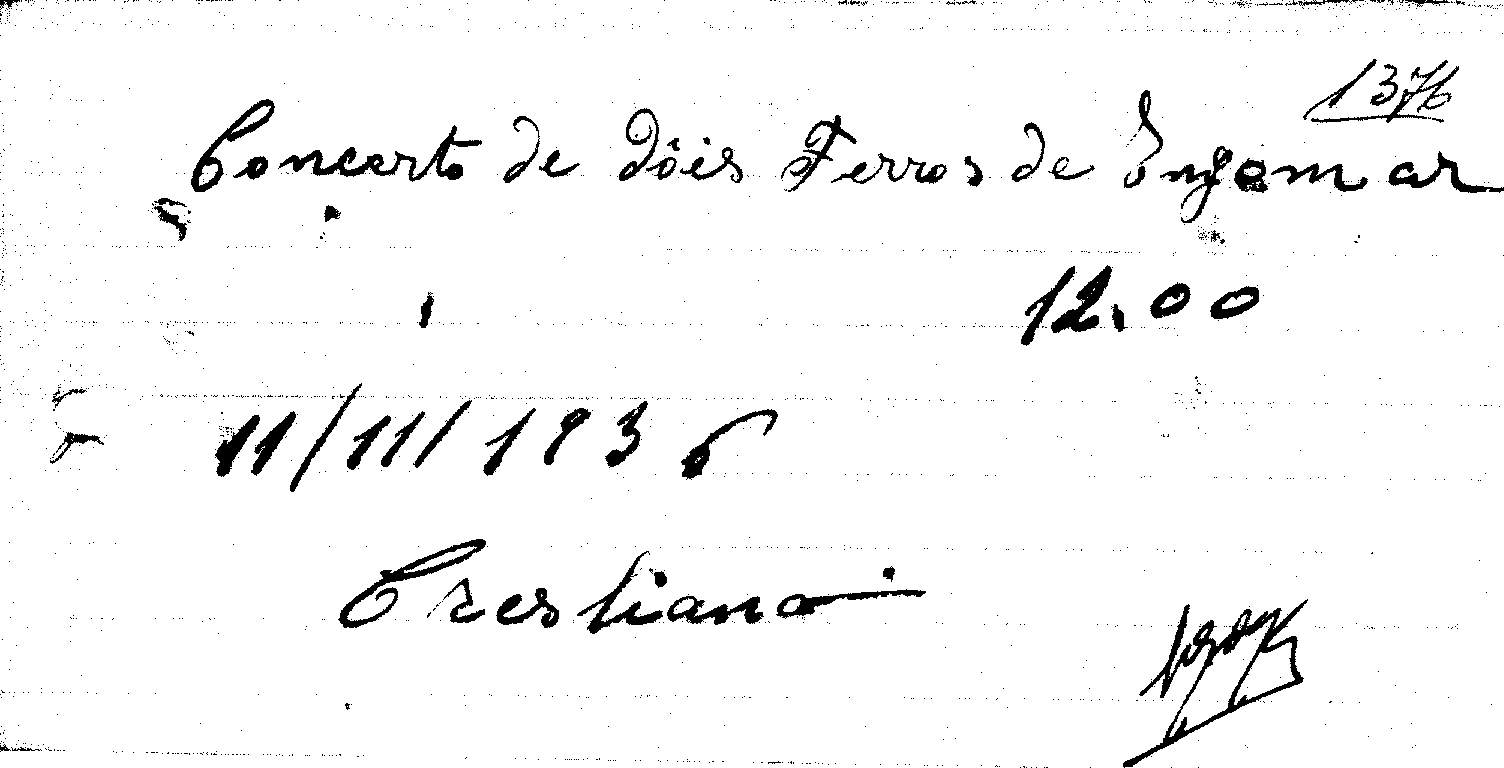 1376
Concerto de dôis Ferros de Engomar
12.00
11/11/1936
Crestiana